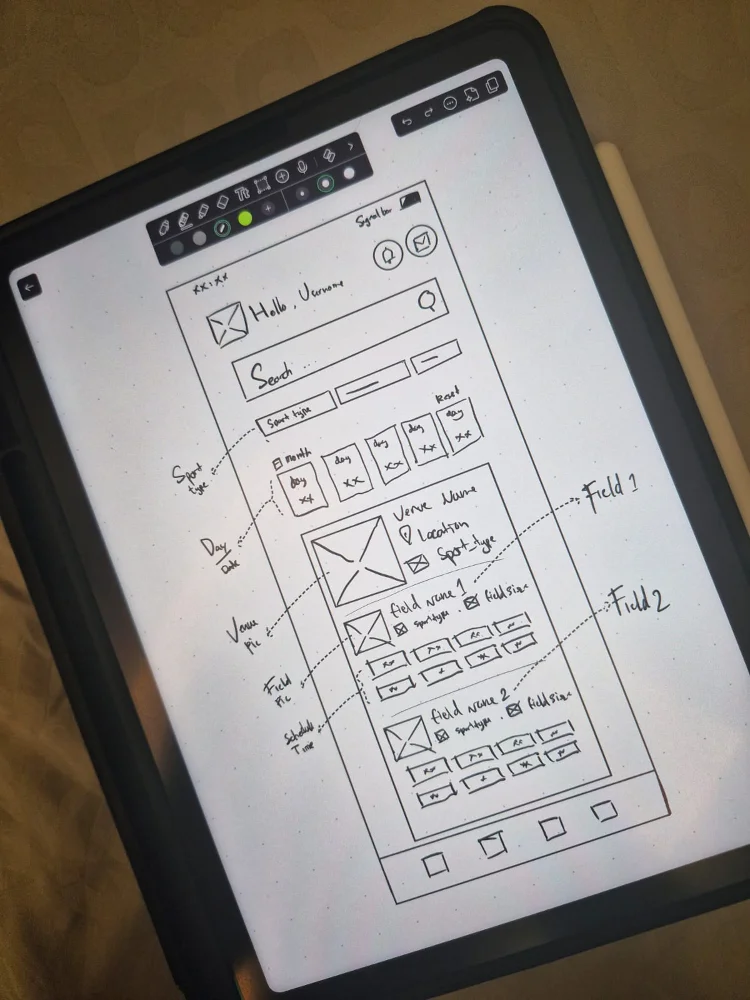 xx:xx
Signal bar
Hello, Username
Search ...
Sport type
Reset
month
day xx
day xx
day xx
day xx
day xx
Venue Name
Location
Sport_type
field name 1
sporttype . field size
field name 2
sporttype . field size
Sport type
Day/Date
Venue pic
Field pic
Schedule Time
Field 1
Field 2